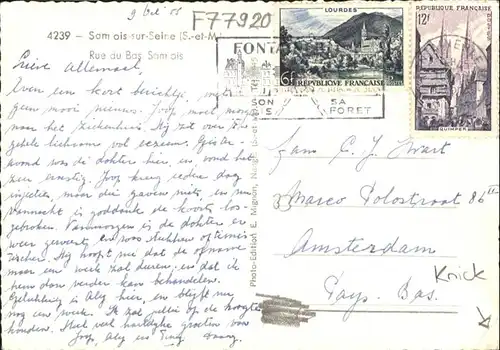 9 Oct 55
F77920
4239 - Samois-sur-Seine (S.-et-M
Rue du Bas Samois
LOURDES
6F RÉPUBLIQUE FRANÇAISE
RÉPUBLIQUE FRANÇAISE
12F
QUIMPER
FONTA
SON
SA
FORET
Lieve Allemaal,
Even een kort berichtje,
geen mooi nieuws. Joop moet morgen
naar het ziekenhuis. Hij zat over z'n
gehele lichaam vol eczeem. Gister
avond was de dokter hier, en vond het
zeer ernstig. Joop kreeg iedere dag
injecties, maar die gaven niets, en nu
Vannacht is goddank de koorts los-
gebroken. Vanmorgen is de dokter er
weer geweest en was stukken optimis-
tischer. Hij hoopt nu dat de opname
maar een week zal duren, en dat ik
hem dan verder kan behandelen.
Gelukkig is Aly hier, en blijft nu
nog een week. Ik zal jullie op de hoogte
houden. Met veel hartelijke groeten van
Joop, Aly en
Photo-Edition E. Mignon,
Fam. C. J. Kwart
Marco Polostraat 86 II
Amsterdam
Pays. Bas.
Knick